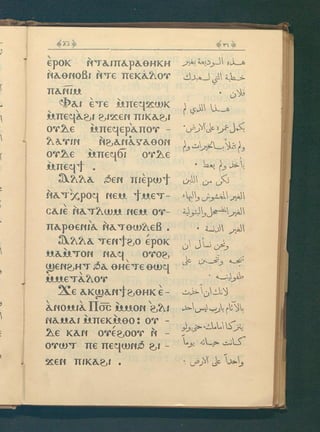 ⲉⲣⲟⲕ ⲛ̀ⲧⲁⲓⲡⲁⲣⲁⲑⲏⲕⲏ
ⲛ̀ⲁⲑⲛⲟⲃⲓ ⲛ̀ⲧⲉ ⲡⲉⲕⲁ̀ⲗⲟⲩ
ⲡⲁⲛⲓⲙ
Ⲫⲁⲓ ⲉ̀ⲧⲉ ⲙ̀ⲡⲉϥϫⲱⲕ
ⲙ̀ⲡⲉϥⲁ̀ϩⲓ ϩⲓϫⲉⲛ ⲡⲓⲕⲁϩⲓ
ⲟⲩⲇⲉ ⲙ̀ⲡⲉϥⲉⲣⲁ̀ⲡⲟⲩ -
ⲗⲁⲩⲓⲛ ⲛ̀ϩⲁⲛⲁ̀ⲅⲁⲑⲟⲛ
ⲟⲩⲇⲉ ⲙ̀ⲡⲉϥϭⲓ ⲟⲩⲇⲉ
ⲙ̀ⲡⲉϥϯ .
Ⲁⲗⲗⲁ ϧⲉⲛ ⲡⲓⲉ̀ⲣⲱϯ
ⲛ̀ⲁⲧⲭ̀ⲣⲟϥ ⲛⲉⲙ ϯⲙⲉⲧ -
ⲥⲁⲓⲉ̀ ⲛ̀ⲁⲧⲗⲱⲙ ⲛⲉⲙ ⲟⲩ -
ⲡⲁⲣⲑⲉⲛⲓⲁ̀ ⲛ̀ⲁⲧⲑⲱⲗⲉⲃ .
Ⲁⲗⲗⲁ ⲧⲉⲛϯϩⲟ ⲉ̀ⲣⲟⲕ
ⲙⲁⲙ̀ⲧⲟⲛ ⲛⲁϥ ⲟⲩⲟϩ,
ϣⲉⲛϩⲏⲧ ϧⲁ ⲑⲏⲉ̀ⲧⲉⲑⲱϥ
ⲙ̀ⲙⲉⲧⲁ̀ⲗⲟⲩ
Ϫⲉ ⲁⲕϣⲁⲛϯϩ̀ⲑⲏⲕ ⲉ̀ -
ⲁ̀ⲛⲟⲙⲓⲁ̀ Ⲡⲟ̅ⲥ̅ ⲙ̀ⲙⲟⲛ ϩ̀ⲗⲓ
ⲛⲁⲙⲁⲓ ⲙ̀ⲡⲉⲕⲙ̀ⲑⲟ : ⲟⲩ -
ⲇⲉ ⲕⲁⲛ ⲟⲩⲉ̀ϩⲟⲟⲩ ⲛ̀ -
ⲟⲩⲱⲧ ⲡⲉ ⲡⲉϥⲱⲛϧ ϩⲓ -
ϫⲉⲛ ⲡⲓⲕⲁϩⲓ .
٣١
هذه الوديعة بغير
خطية التي لعبدك
فلان .
هذا الذي لم
يكمل عمره على الارض
ولم بالخيرات ولم
يأخذ ولم يعط .
لكن من اللبن
الغير المغشوش والبهاء
الغير المضمحل والبتولية
الغير الدنسة .
ونحن نسأل ان
تنيحه وتتحنن على
طفوليته .
لانك ان اخذت
بالآثام يارب ليس احد
يتزكا امامك حتى ولو
كانت حياته يوماً
واحداً على الارض .